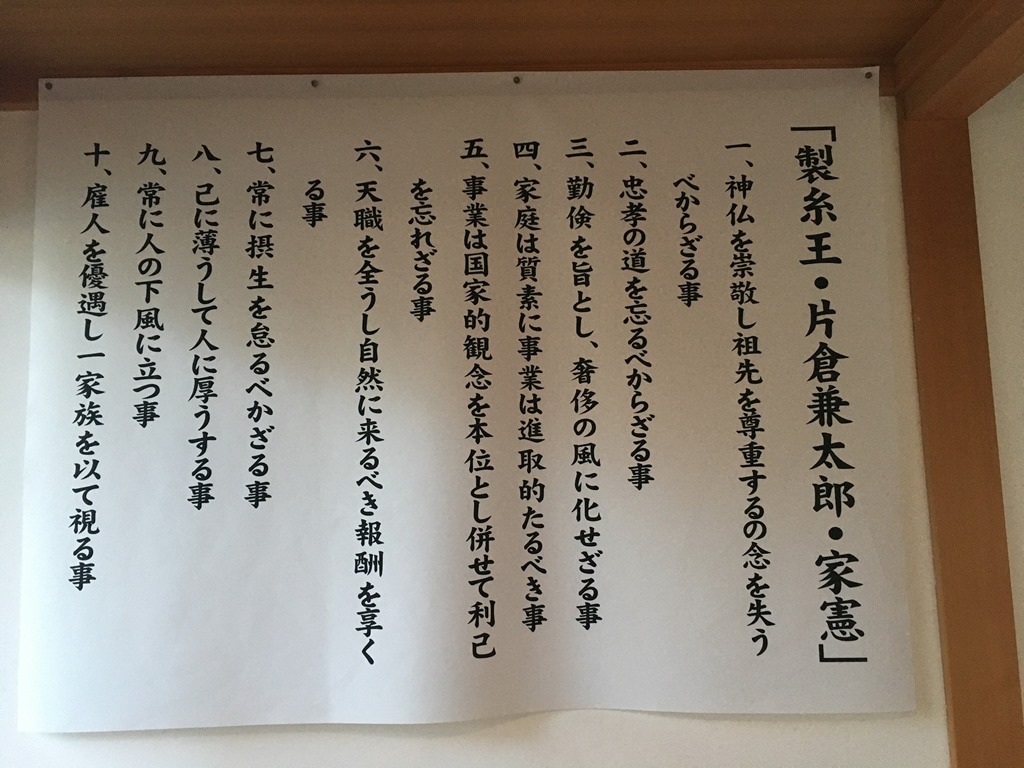 「製糸王・片倉兼太郎・家憲」
一、神仏を崇敬し祖先を尊重するの念を失う
べからざる事
二、忠孝の道を忘るべからざる事
三、勤倹を旨とし、奢侈の風に化せざる事
四、家庭は質素に事業は進取的たるべき事
五、事業は国家的観念を本位とし併せて利己
を忘れざる事
六、天職を全うし自然に来るべき報酬を享く
る事
七、常に摂生を怠るべかざる事
八、己に薄うして人に厚うする事
九、常に人の下風に立つ事
十、雇人を優遇し一家族を以て視る事